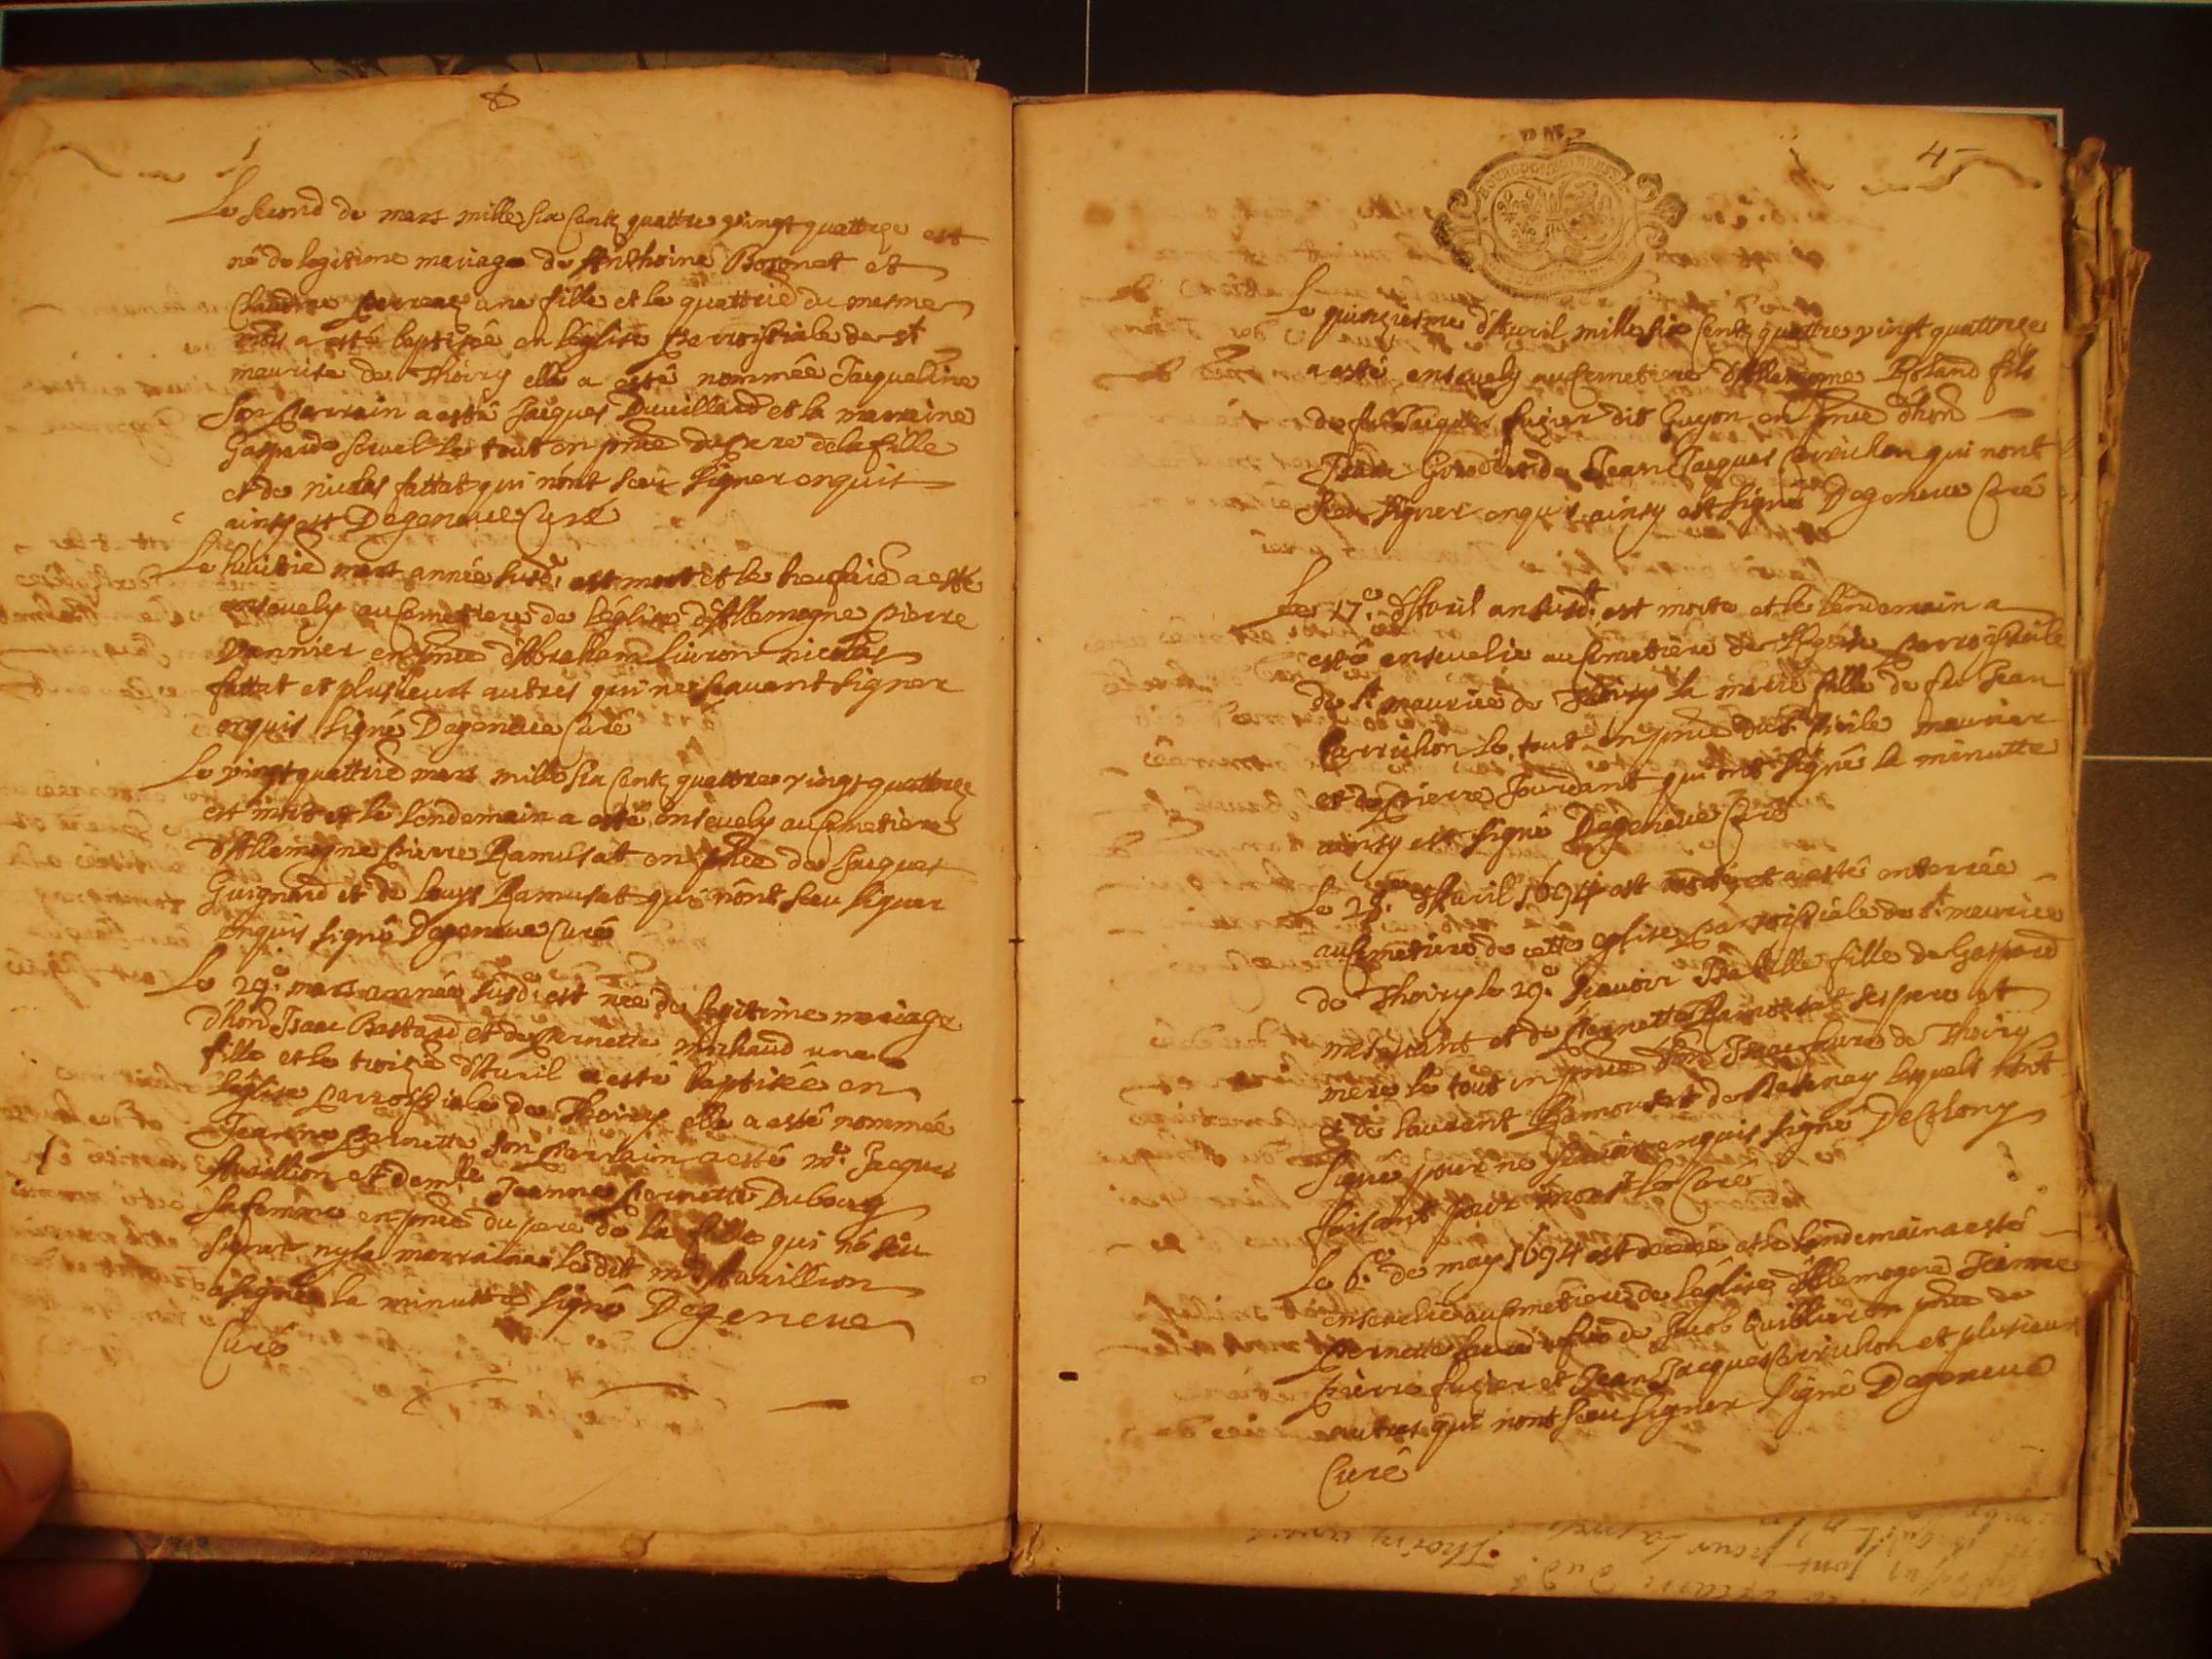 Le second de mars mille six cents quattre vingt quattorze est
né de legitime mariage de Anthoine Bosonet et
Claudine perreaz une fille et le quattrie du mesme
mois a esté baptisée en l'église parroissiale de st
maurice de Thoiry elle a esté nommée Jacqueline
son parrain a esté Jacques Duvillard et la marraine
Gasparde le tout en pnce du pere de la fille
et de nicolas fattat qui n'ont sceu signer enquis
ainsy est Degeneve Curé
Le huictie mars année susde est mort et le neufvie a esté
ensevely au Cemetiere de l'église d'Allemogne pierre
Vannier en pnce d'Abraham Livron nicolas
fattat et plusieurs autres qui ne scavent signer
enquis signé Degeneve Curé
Le vingt quattrie mars mille six cents quattre vingt quattorze
est mort et le lendemain a esté ensevely au Cemetiere
d'Allemogne pierre Ramusat en pnce de Jacques
Guignard et de Louys Ramusat qui n'ont sceu signer
enquis signé Degeneve Curé
Le 29e mars année susde est née de legitime mariage
d'hon Isaac Bastard et de pernette michaud une
fille et le troisie d'Avril a esté baptisée en
l'église parroissiale de Thoiry elle a esté nommée
Jeanne pernette son parrain a esté me Jacques
Favillion et demlle Jeanne pernette Dubourg
sa femme en pnce du pere de la fille qui n'a sceu
signer ny la marraine ledit me favillion
a signé la minutte signé Degeneve
Curé
4
Le quinziesme d'Avril mille six cents quattre vingt quattorze
a esté ensevely au Cemetiere d'Allemogne Roland fils
de feu Jacques fuzier dit Guyon en pnce d'hon
Isaac Girod et de Jean Jacques perrichon qui n'ont
sceu signer enquis ainsy est signé Degeneve Curé
Le 17e d'Avril an susdt est morte et le lendemain a
esté ensevelie au Cemetiere de l'église parroissiale
de st maurice de Thoiry la fille de feu Jean
perrichon le tout en pnce du sr maurier
et de pierre Jourdant qui ont signé la minutte
ainsy est signé Degeneve Curé
Le 28e d'Avril 1694 est et a esté enterrée
au Cemetiere de cette église parroissiale de st maurice
de Thoiry le 29e scavoir Isabelle fille de Gaspard
et de pernette Ramousat ses pere et
mere le tout en pnce d'hon Isaac de Thoiry
et de Laurent Ramousat de lesquels n'ont
signé pour ne scavoir enquis signé Decolony
faisant pour monsr le Curé
Le 6e de may 1694 est decedée et le lendemain a esté
ensevelie au Cemetiere de l'église d'Allemogne Jeanne
pernette de Jacob Quiblier en pnce de
pierre fuzier et Jean Jacques perrichon et plusieurs
autres qui n'ont sceu signer signé Degeneve
Curé